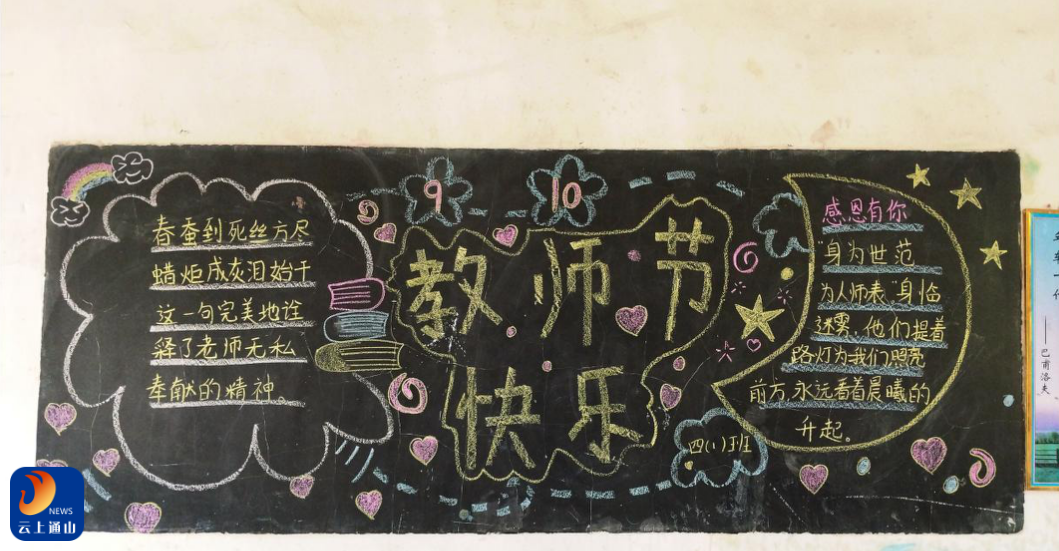 9 10
教师节
快乐
春蚕到死丝方尽
蜡炬成灰泪始干
这一句完美地诠
释了老师无私
奉献的精神。
感恩有你
"身为世范
为人师表"身临
迷雾,他们提着
路灯为我们照亮
前方,永远看着晨曦的
升起。
四(1)班
——巴甫洛夫
NEWS
云上通山